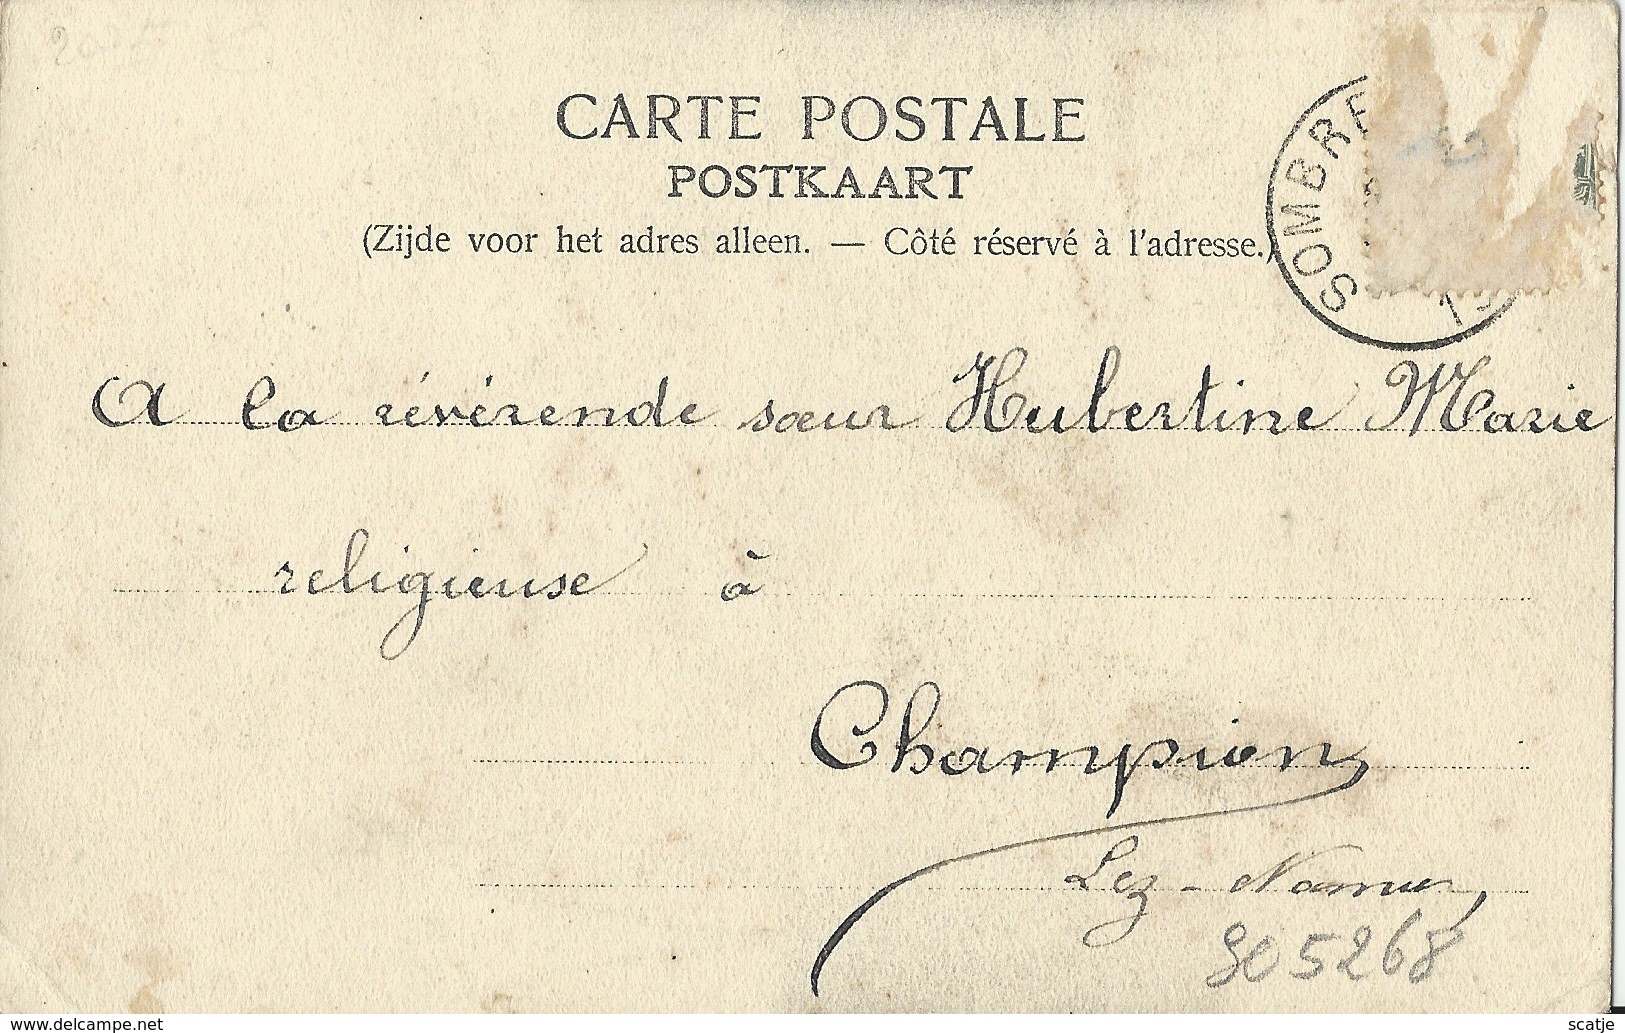 CARTE POSTALE
POSTKAART
(Zijde voor het adres alleen. — Côté réservé à l'adresse.)
SOMBRE
A la révérende sœur Hubertine Marie
religieuse à
Champion
Lez-Namur,
5268
www.delcampe.net
scatje